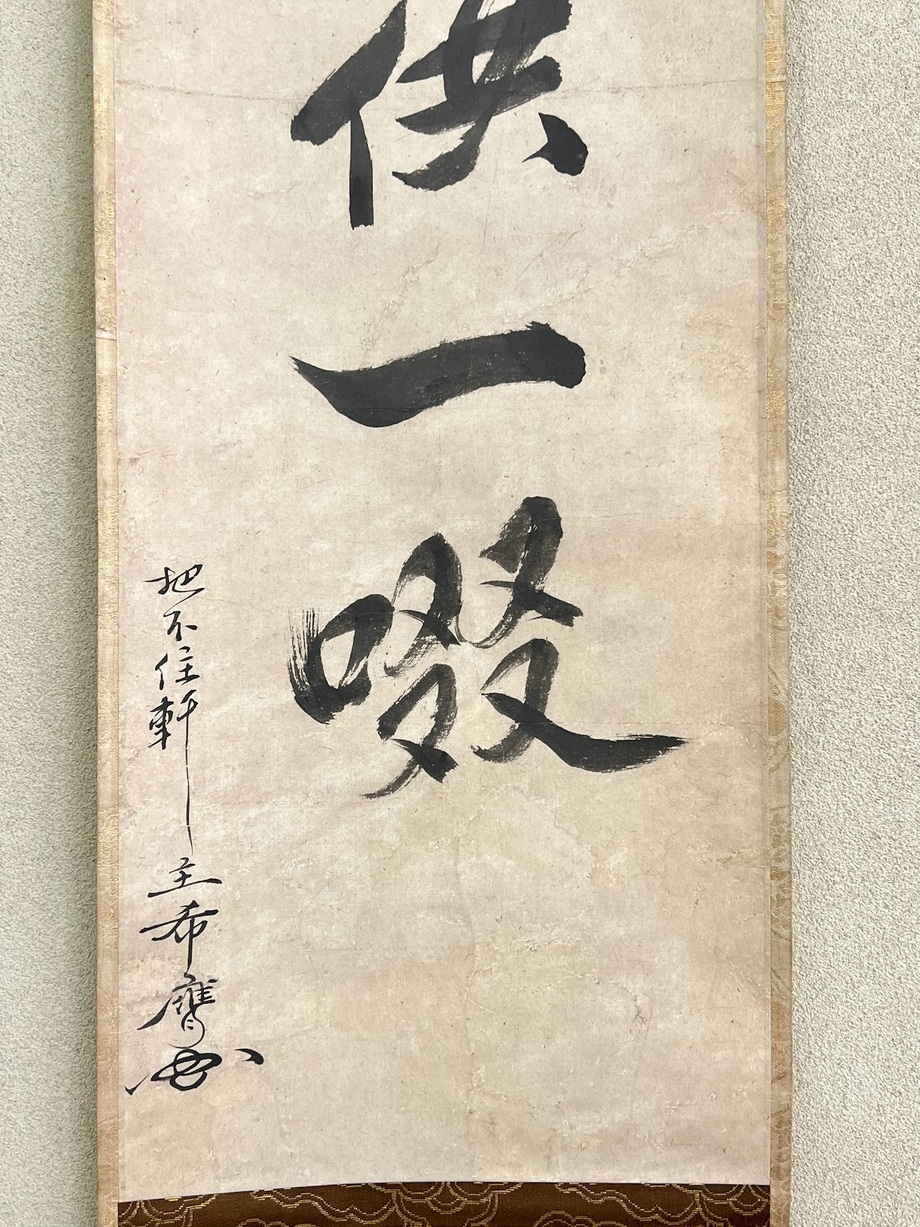 供一啜
把不住軒主希膺